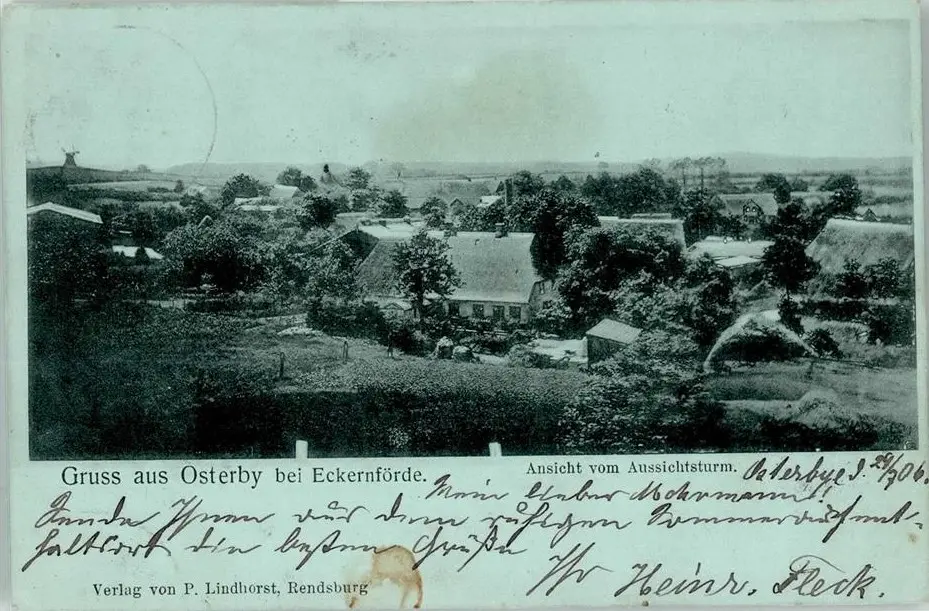 Gruss aus Osterby bei Eckernförde.
Ansicht vom Aussichtsturm.
Osterbye d. 29/7 06.
Mein lieber Mohrmann!
Sende Ihnen aus dem ruhigen Sommeraufent-
haltsort die besten Grüße
Ihr Heinr. Fleck.
Verlag von P. Lindhorst, Rendsburg